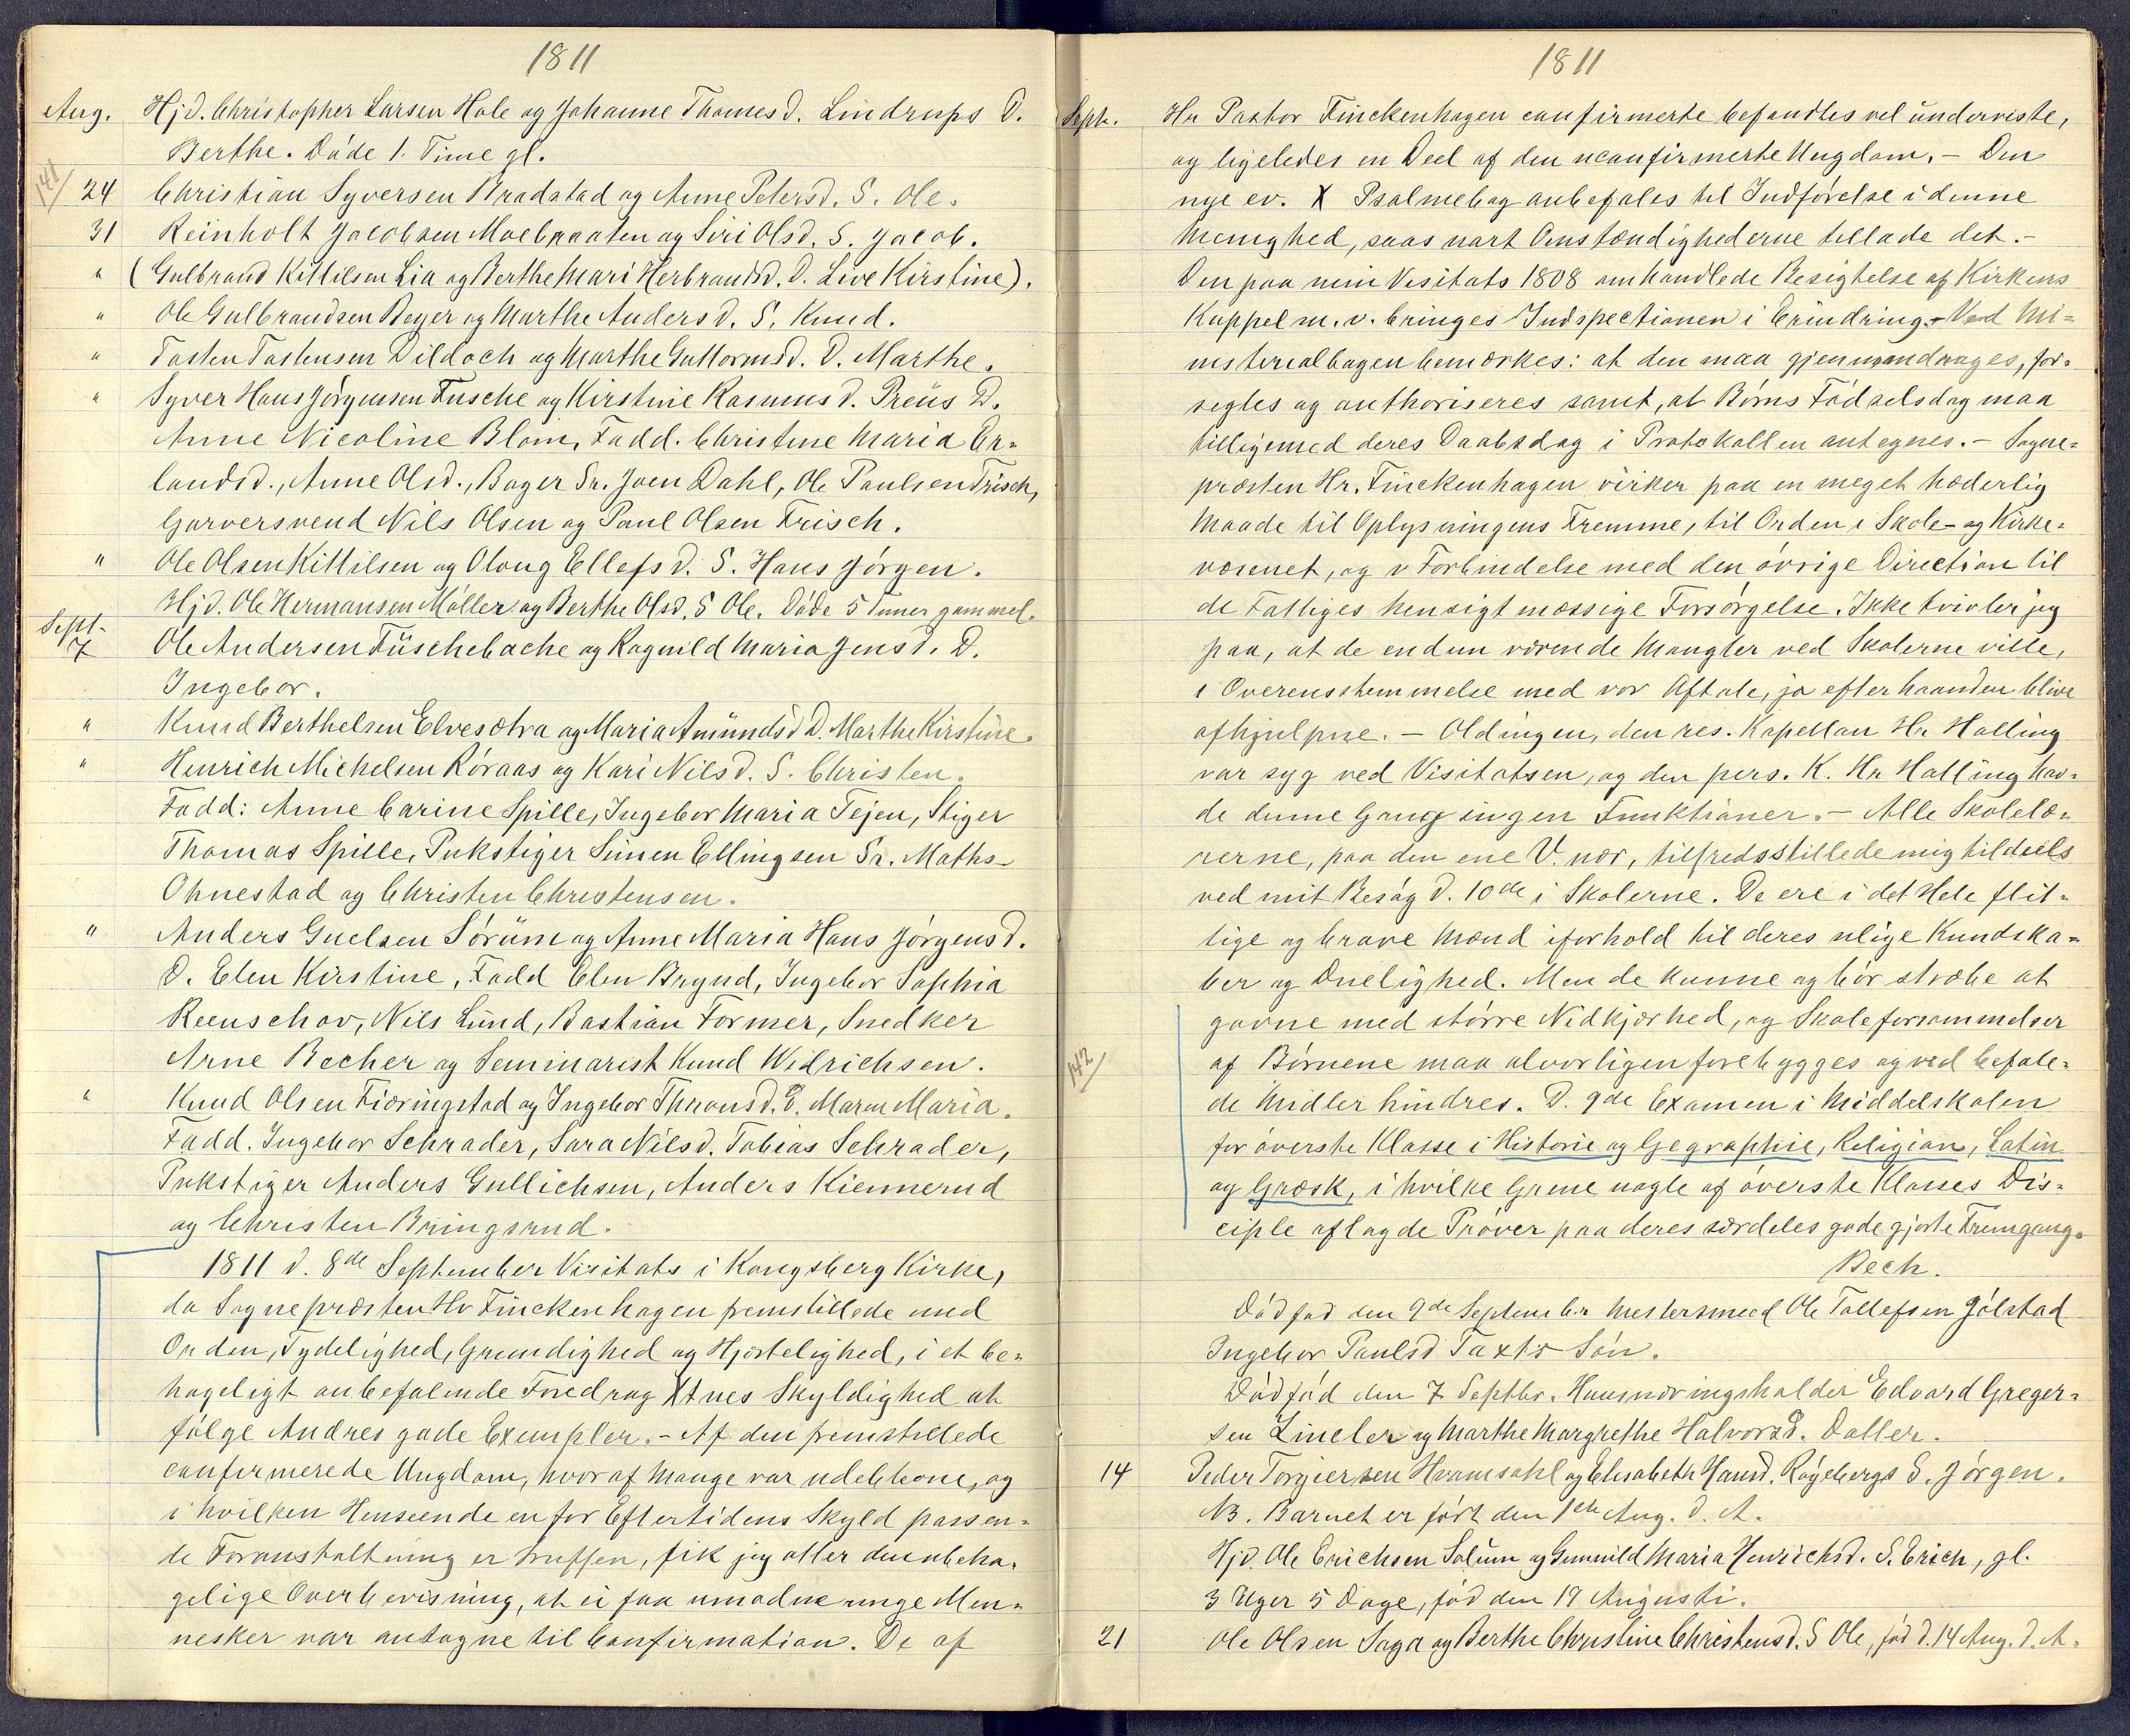 1811
Aug. Hjd. Christopher Larsen Hole og Johanne Thomesd. Lindrups D.
Berthe. Døde 1. Time gl.
141/
24 Christian Syversen Bradstad og Anne Petersd. S. Ole.
31 Reinholt Jacobsen Moebraaten og Siri Olsd. S. Jacob.
" (Gulbrand Kittilsen Lia og Berthe Mari Herbrandsd. D. Live Kirstine).
" Ole Gulbrandsen Beyer og Marthe Andersd. S. Knud.
" Tosten Tostensen Dildoch og Marthe Guttormsd. D. Marthe.
" Syver Hans Jörgensen Fusche og Kirstine Rasmusd. Preüs D.
Anne Nicoline Blom, Fadd. Christine Maria Er=
landsd., Anne Olsd., Bager Sr. Joen Dahl, Ole Paulsen Frisch,
Garversvend Nils Olsen og Paul Olsen Frisch.
" Ole Olsen Kittilsen og Oloug Ellefsd. S. Hans Jörgen.
Hjd. Ole Hermansen Möller og Berthe Olsd. S Ole. Døde 5 Timer gammel.
Sept.
7 Ole Andersen Füschebache og Ragnild Maria Jensd. D.
Ingebor.
" Knud Berthelsen Elvesætra og Maria Amündsd D. Marthe Kirstine.
" Henrich Michelsen Röraas og Kari Nilsd. S. Christen.
Fadd: Anne Carine Spille, Ingebor Maria Tejen, Stiger
Thomas Spille, Pukstiger Simen Ellingsen Sr. Maths
Ohnestad og Christen Christensen.
" Anders Guelsen Sörüm og Anne Maria Hans Jörgensd.
D. Elen Kirstine, Fadd Elen Brynd, Ingebor Sophia
Reenschov, Nils Lünd, Bastian Former, Snedker
Arne Becher og Seminarist Knud Widrichsen.
" Knud Olsen Fiæringstad og Ingebor Thronsd. D. Maren Maria.
Fadd. Ingebor Schrader, Sara Nilsd. Tobias Schrader,
Pukstiger Anders Gullichsen, Anders Kiennerud
og Christen Bringsrud.
1811 d. 8de September Visitats i Kongsberg Kirke,
da Sognepræsten Hr Finckenhagen fremstillede med
Orden, Tydelighed, Grundighed og Hjertelighed, i et be=
hageligt anbefalende Foredrag Xtnes Skyldighed at
fölge Andres gode Exempler. – Af den fremstillede
confirmerede Ungdom, hvoraf Mange var udebleone, og
i hvilken Henseende en for Eftertidens Skyld passen=
de Foranstaltning er truffen, fik jeg atter den ubeha=
gelige Overbevisning, at ei faa umodne unge Men=
nesker var antagne til Confirmation. De af
1811
Sept. Hr Pastor Finckenhagen confirmerte befandtes vel underviste,
og ligeledes en Deel af den uconfirmerte Ungdom. – Den
nye ev. X Psalmebog anbefales til Indførelse i denne
Menighed, saas nart Omstændighederne tillade det. –
Den paa min Visitats 1808 omhandlede Besigtelse af Kirkens
Kuppel m. v. bringes Indspectionen i Erindring. – Ved Mi=
nisterialbogen bemærkes: at den maa gjennemdrages, for=
segles og authoriseres samt, at Börns Födselsdag maa
tilligemed deres Daabsdag i Protokollen antegnes. – Sogne=
præsten Hr. Finckenhagen virker paa en meget hæderlig
Maade til Oplysningens Fremme, til Orden i Skole- og Kirke=
væsenet, og i Forbindelse med den övrige Direction til
de Fattiges hensigtmæssige Forsörgelse. Ikke tvivler jeg
paa, at de endnu værende Mangler ved Skolerne ville,
i Overensstemmelse med vor Aftale, jo efterhaanden blive
afhjulpne. – Oldingen, den res. Kapellan Hr Halling
var syg ved Visitatsen, og den pers. K. Hr Halling hav=
de denne Gang ingen Funktioner. – Alle Skolelæ=
rerne, paa den ene V. nær, tilfredsstillede mig tildeels
ved mit Besög d. 10de i Skolerne. De ere i det Hele flit=
tige og brave Mænd iforhold til deres ulige Kundska=
ber og Duelighed. Men de kunne og bör stræbe at
gavne med större Nidkjærhed, og Skoleforsømmelser
142/
af Börnene maa alvorligen forebygges og ved befale=
de Midler hindres. D. 9de Examen i Middelskolen
for överste Klasse i Historie og Gegraphie, Religion, Latin
og Græsk, i hvilke Grene nogle af överste Klasses Dis=
ciple aflagde Pröver paa deres særdeles gode gjorte Fremgang.
Bech.
Dödfød den 9de September Mestersmed Ole Tollefsen Jölstad
Ingebor Paulsd Taxts Sön.
Dödfød den 7 Septbr. Huusnæringsholder Edvard Greger=
sen Lincler og Marthe Margrethe Halvorsd. Datter.
14 Peder Torgiersen Hvamsahl og Elisabeth Hansd. Røgebergs S. Jörgen.
NB. Barnet er födt den 1ste Aug. d. A.
Hjd. Ole Erichsen Solum og Gunnild Maria Henrichsd. S. Erich, gl.
3 Uger 5 Dage, föd den 19 Augusti.
21 Ole Olsen Saga og Berthe Christine Christensd. S Ole, föd d. 14 Aug. d. A.